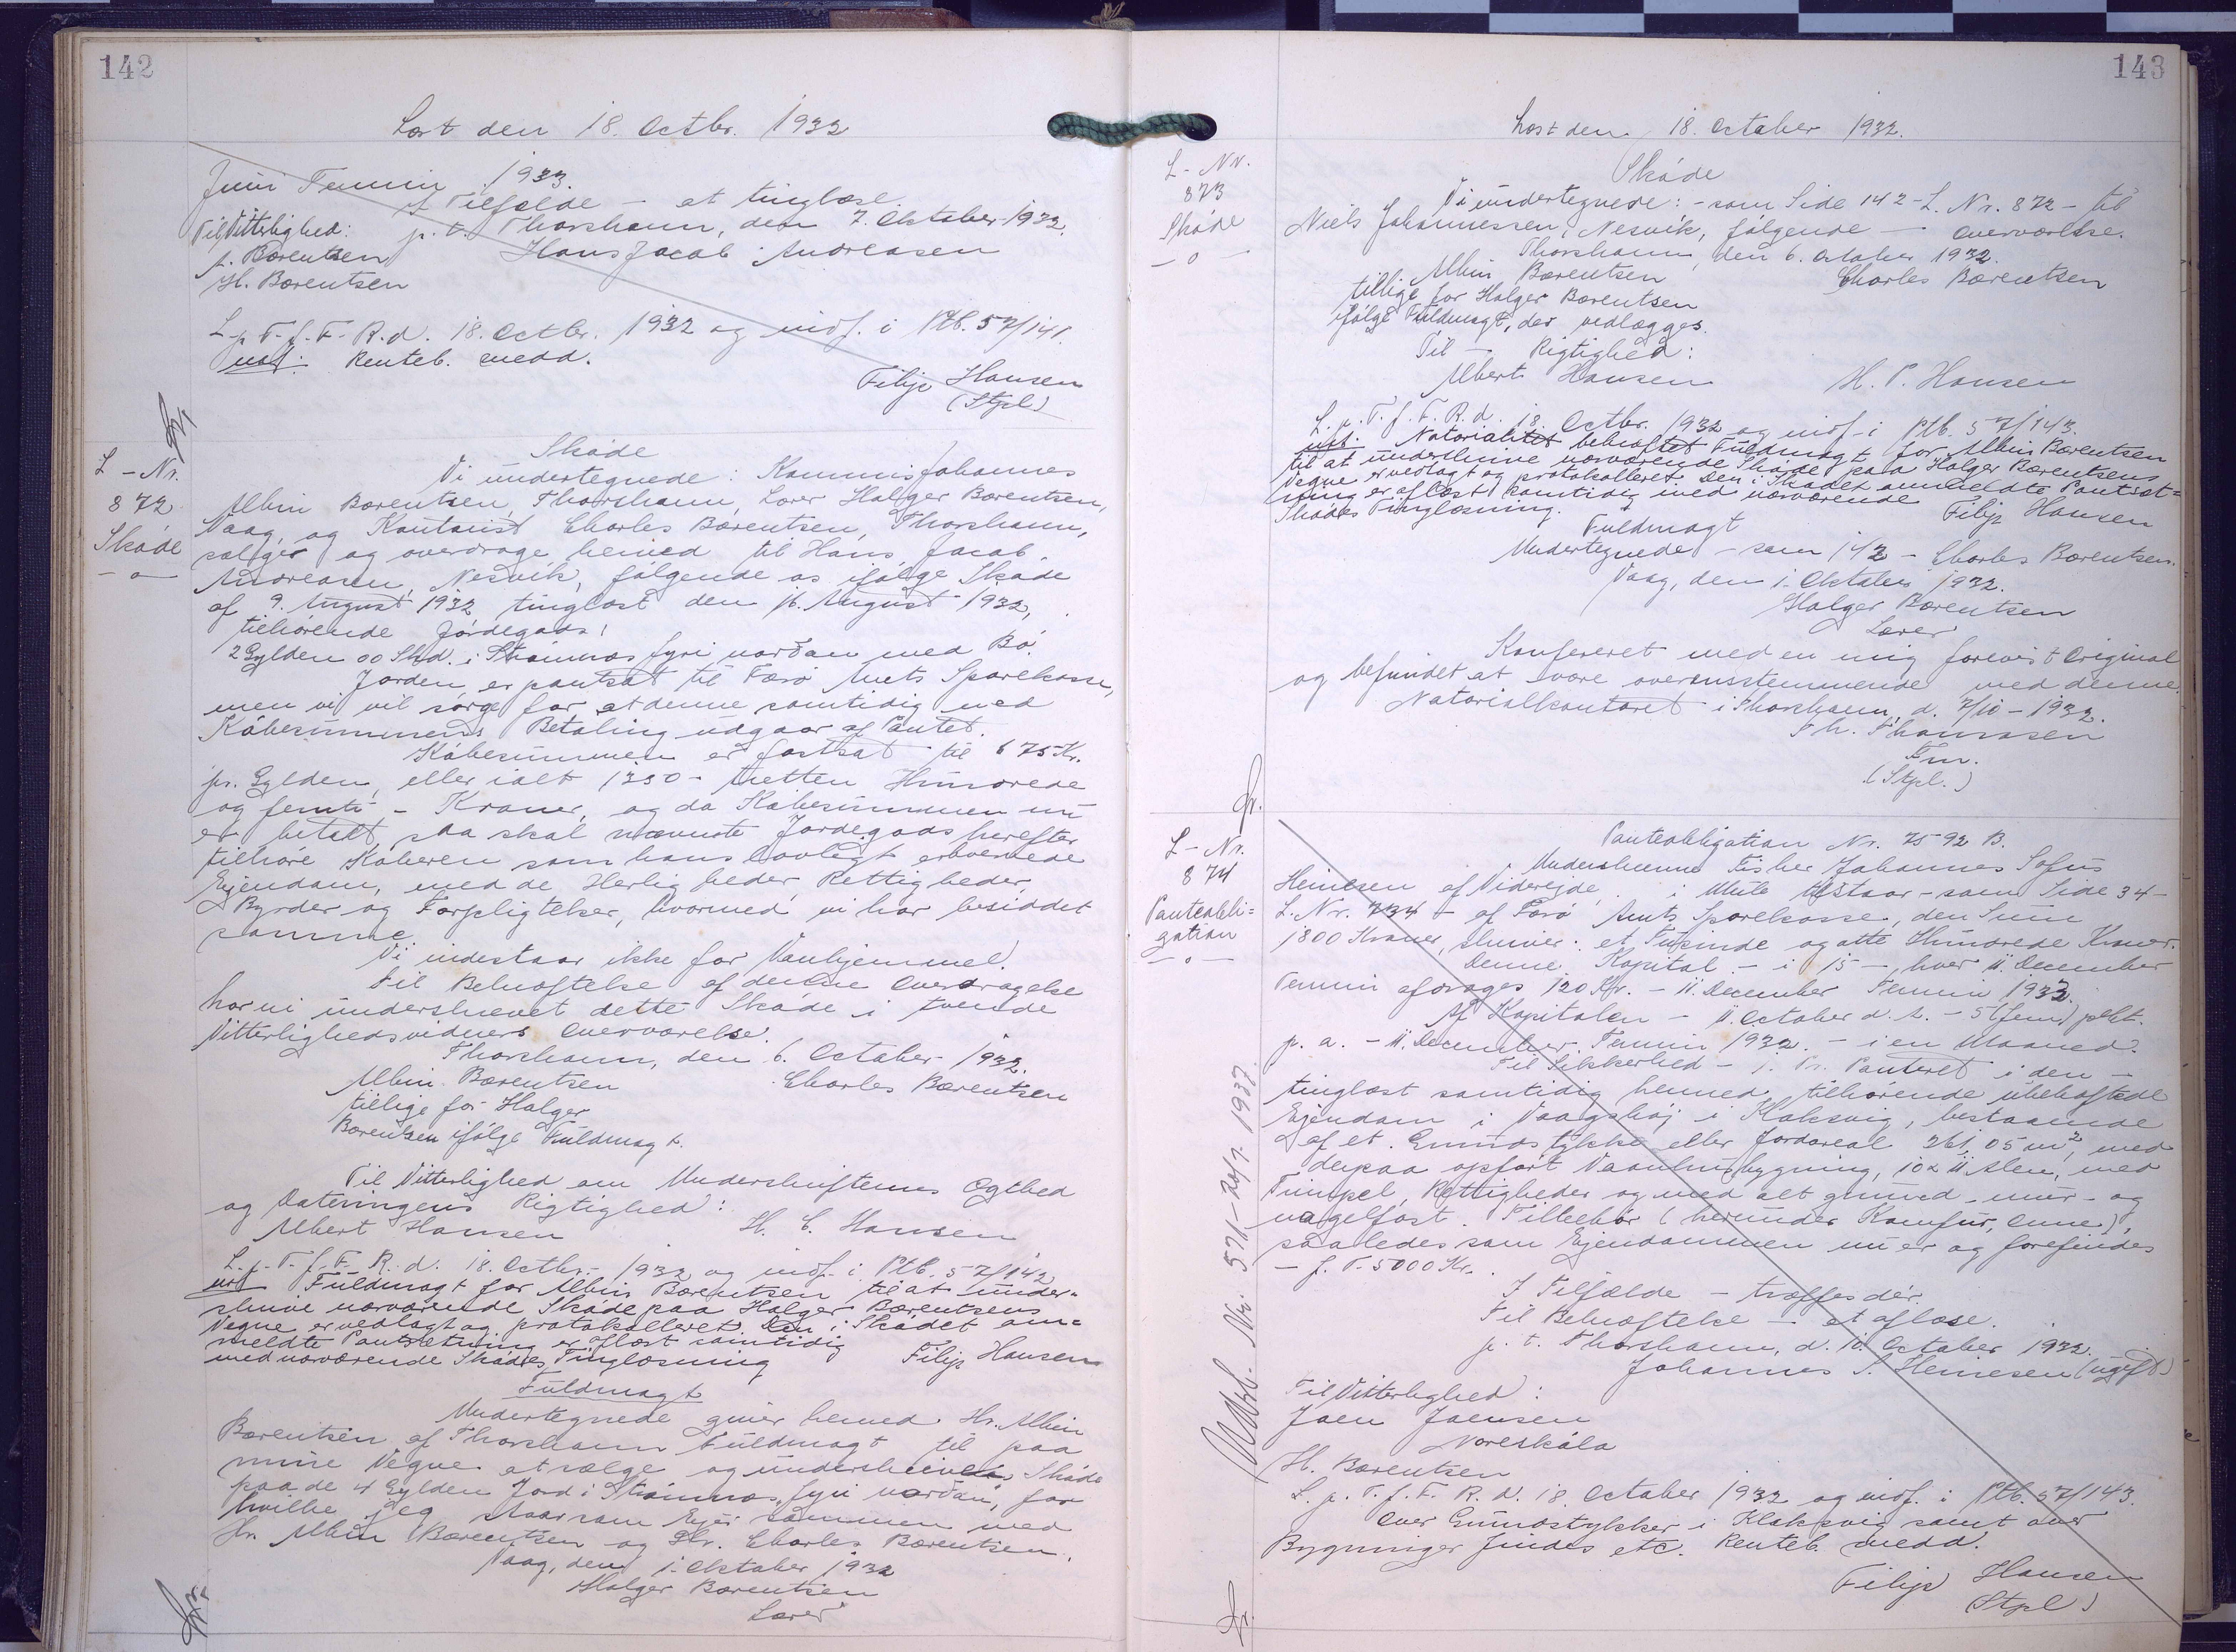 142
Læst den 18. Octbr. 1932
Juni Termin 1933.
I Tilfælde - at tinglæse.
p. t. Thorshavn, den 7. Oktober 1932.
Til Vitterlighed:
Hans Jacob Andreasen
J. Bærentsen
H. Bærentsen
L. p. T. f. F. R. d. 18. Octbr. 1932 og indf. i Ptb. 57/141.
ust. Renteb. medd.
Filip Hansen
(Stpl.)
L - Nr.
872
Skøde
- o -
Skøde
Vi undertegnede: Kommis Johannes
Albin Bærentsen, Thorshavn, Lærer Holger Bærentsen,
Vaag, og Kontorist Charles Bærentsen, Thorshavn,
sælger og overdrage herved til Hans Jacob
Andreasen, Nesvík, følgende os ifølge Skøde
af 9. August 1932, tinglæst den 16. August 1932,
tilhørende Jordegods:
2 Gylden 00 Skd. i Strømnæs fyri norðan med Bø.
Jorden er pantsat til Færø Amts Sparekasse,
men vi vil sørge for, at denne samtidig med
Købesummens Betaling udgaar af Pantet.
Købesummen er fastsat til 675 Kr.
pr. Gylden, eller ialt 1350 - tretten Hundrede
og femti - Kroner, og da Købesummen nu
er betalt, saa skal nævnte Jordegods herefter
tilhøre Køberen som hans lovligt erhvervede
Ejendom, med de Herligheder, Rettigheder,
Byrder og Forpligtelser, hvormed vi har besiddet
samme.
Vi indestaar ikke for Vanhjemmel.
Til Bekræftelse af denne Overdragelse
har vi underskrevet dette Skøde i tvende
Vitterlighedsvidners Overværelse.
Thorshavn, den 6. October 1932.
Albin Bærentsen Charles Bærentsen
tillige for Holger
Bærentsen ifølge Fuldmagt.
Til Vitterlighed om Underskrifternes Ægthed
og Dateringens Rigtighed:
Albert Hansen H. C. Hansen
L. p. T. f. F. R. d. 18. Octbr. 1932 og indf. i Ptb. 57/142
ust. Fuldmagt for Albin Bærentsen til at under-
skrive nærværende Skøde paa Holger Bærentsens
Vegne er vedlagt og protokolleret. Den i Skødet om-
meldte Pantsætning er aflæst samtidig
med nærværende Skødes Tinglæsning
Filip Hansen
Fuldmagt
Undertegnede giver herved Hr. Albin
Bærentsen af Thorshavn Fuldmagt til paa
mine Vegne at sælge og underskrive Skøde
paa de 4 Gylden Jord i Strømnæs, fyri norðan, for
hvilke jeg staar som Ejer sammen med
Hr. Albin Bærentsen og Hr. Charles Bærentsen.
Vaag, den 1. Oktober 1932
Holger Bærentsen
Lærer
143
Læst den 18. October 1932.
L - Nr.
873
Skøde
- o -
Skøde
Vi undertegnede: - som Side 142 - L. Nr. 872 - til
Niels Johannessen, Nesvík, følgende - Overværelse.
Thorshavn, den 6. October 1932.
Albin Bærentsen Charles Bærentsen
tillige for Holger Bærentsen
ifølge Fuldmagt, der vedlægges.
Til - Rigtighed:
Albert Hansen H. C. Hansen
L. p. T. f. F. R. d. 18. Octbr. 1932 og indf. i Ptb. 57/143.
ust. Notorialitet bekræftet Fuldmagt for Albin Bærentsen
til at underskrive nærværende Skøde paa Holger Bærentsens
Vegne er vedlagt og protokolleret. Den i Skødet anmeldte Pantsæt-
ning er aflæst samtidig med nærværende
Skødes Tinglæsning. Filip Hansen
Fuldmagt
Undertegnede - som 142 - Charles Bærentsen.
Vaag, den 1. Oktober 1932.
Holger Bærentsen
Lærer
Konfereret med en mig forevist Original
og befundet at være overensstemmende med denne.
Notorialkontoret i Thorshavn, d. 7/10 - 1932.
Th. Thomasen
Fm.
(Stpl.)
L - Nr.
874
Panteobli-
gation
- o -
Panteobligation Nr. 7592 B.
Underskrevne Fisker Johannes Sofus
Heinesen af Viderejde, i Møte tilstaar - som Side 34 -
L. Nr. 734 - af Færø Amts Sparekasse, den Sum
1800 Kroner, skriver: et Tusinde og otte Hundrede Kroner.
Denne Kapital - i 15 -, hver 11. December
Termin afdrages 120 Kr. - 11. December Termin 1933.
Af Kapitalen - 11. October d. A. - 5 (fem) pCt.
p. a. - 11. December Termin 1932. - i en Maaned.
Til Sikkerhed - 1. Pr. Panteret i den -
tinglæst samtidig hermed, tilhørende ubehæftede
Ejendom i Vaagshøj i Klaksvig, bestaaende
af et Grundstykke eller Jordareal 261,05 m², med
derpaa opført Vaaningsbygning, 10 x 11 Alen, med
Tumpel, Rettigheder og med alt grund-, mur- og
nagelfast Tilbehør (herunder Komfur, Ovne),
saaledes som Ejendommen nu er og forefindes
- f. T. 5000 Kr.
I Tilfælde - træffes dér.
Til Bekræftelse - at aflæse.
p. t. Thorshavn, d. 10. October 1932.
Johannes S. Heinesen (ugift)
Til Vitterlighed:
Joen Joensen
Noreskála
H. Bærentsen
L. p. T. f. F. R. d. 18. October 1932 og indf. i Ptb. 57/143.
Over Grundstykker i Klaksvig samt over
Bygninger findes etc. Renteb. medd.
Filip Hansen
(Stpl.)